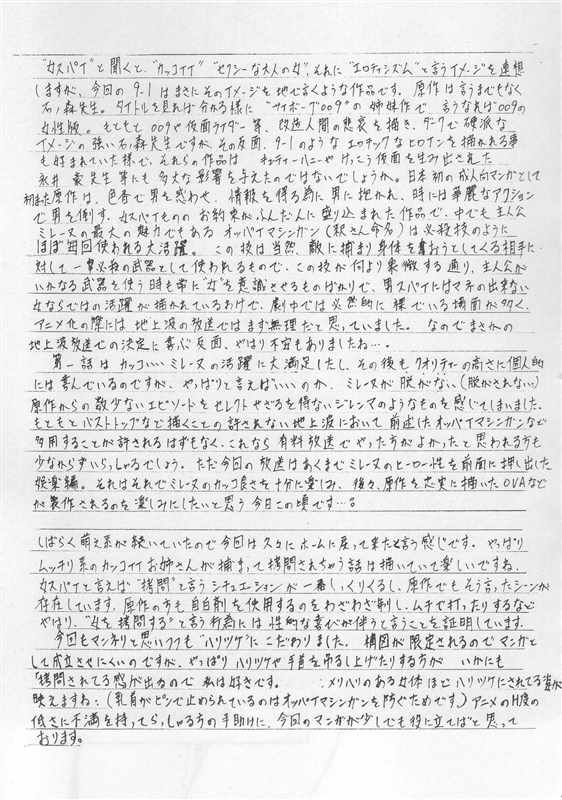 "女スパイ"と聞くと、"カッコイイ" "セクシーな大人の女"、それに"エロティシズム"と言うイメージを連想
しますが、今回の9-1はまさにそのイメージを地で行くような作品です。 原作は言うまでもなく
石ノ森先生。タイトルを見れば分かる様に "サイボーグ009"の姉妹作で 言うなれば009の
女性版。もともと 009や仮面ライダー等、改造人間の悲哀を描き、ダークで硬派な
イメージの強い石ノ森先生ですが、その反面、9-1のような エロチックなヒロインを描かれる事
も好まれていた様で、それらの作品は キューティーハニーや けっこう仮面を生み出された
永井 豪先生等にも 多大な影響を与えたのではないでしょうか。日本初の成人向マンガとして
始まった原作は、色香で男を惑わせ、情報を得る為に男に抱かれ、時には華麗なアクション
で男を倒す、女スパイものの お約束がふんだんに盛り込まれた作品で、中でも主人公
ミレーヌの最大の魅力でもある オッパイマシンガン(叙さん命名)は必殺技のように
ほぼ毎回使われる大活躍。 この技は当然、敵に捕まり身体を奪おうとしてくる相手に
対して一撃必殺の武器として使われるもので、この技が何より象徴する通り、主人公が
いかなる武器を使う時も常に"女"を意識させるものばかりで、男スパイにはマネの出来ない
女ならではの活躍が描かれているわけで、劇中では必然的に 裸でいる場面が多く、
アニメ化の際には 地上波の放送ではまず無理だと思っていました。 なのでまさかの
地上波放送での決定に喜ぶ反面、やはり不安もありましたね…。
第一話は カッコいい ミレーヌの活躍に大満足したし、その後も クオリティーの高さに個人的
には喜んでいるのですが、やっぱりと言えばいいのか、ミレーヌが脱がない(脱がされない)
原作からの数少ないエピソードを セレクトせざるを得ない ジレンマのようなものを感じてしまいました。
もともと バストトップなど描くことの許されない地上波において 前述したオッパイマシンガンなど
多用することが許されるはずもなく、これなら 有料放送でやった方がよかったと 思われる方も
少なからずいらっしゃるでしょう。 ただ今回の放送はあくまでミレーヌのヒーロー性を前面に押し出した
娯楽編。それはそれでミレーヌのカッコ良さを十分に楽しみ、後々、原作を忠実に描いたOVAなど
が製作されるのを楽しみにしたいと思う 今日この頃です…。
しばらく萌え系が続いていたので今回は久々に ホームに戻って来たと言う感じです。 やっぱり
ムッチリ系のカッコイイお姉さんが 捕まって拷問されちゃう話は描いていて楽しいですね。
女スパイと言えば"拷問"と言う シチュエーションが 一番しっくりくるし、原作でも そう言ったシーンが
存在しています。原作の方も 自白剤を使用するのをわざわざ制し、ムチで打ったりするなど
やはり、"女を拷問する"と言う行為には 性的な喜びが伴うと言うことを証明しています。
今回もマンネリと思いつつも "ハリツケ"に こだわりました。 構図が限定されるのでマンガと
して成立させにくいのですが、やっぱり ハリツケや 手首を吊るし上げたりする方が いかにも
「拷問されてる感が出るので 私は好きです。 メリハリのある女体ほど ハリツケにされてる姿が
映えますね。(乳首がピンで止められているのは オッパイマシンガンを防ぐためです。) アニメのH度の
低さに不満を持ってらっしゃる方の手助けに、今回のマンガが少しでも役に立てばと 思って
おります。